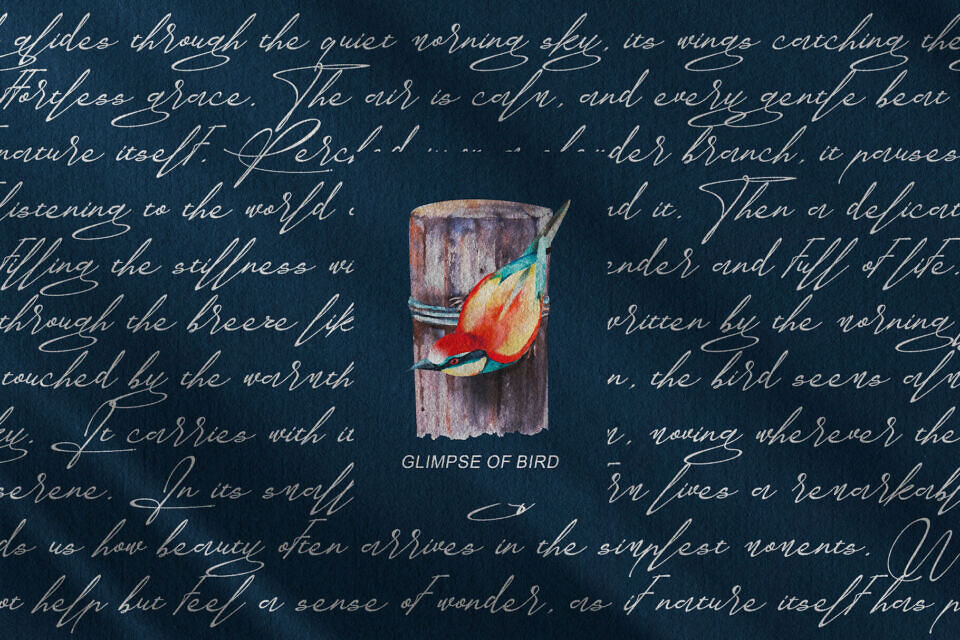 glides through the quiet morning sky, its wings catching the
ffortless grace. The air is calm, and every gentle beat
nature itself. Perched der branch, it pauses
listening to the world nd it. Then a delicat
filling the stillness wi ender and full of life.
through the breeze lik written by the morning
touched by the warmth n, the bird seems alm
ky. It carries with it n, moving wherever the
serene. In its small rm lives a remarkab
ds us how beauty often arrives in the simplest moments. W
ot help but feel a sense of wonder, as if nature itself has p
GLIMPSE OF BIRD